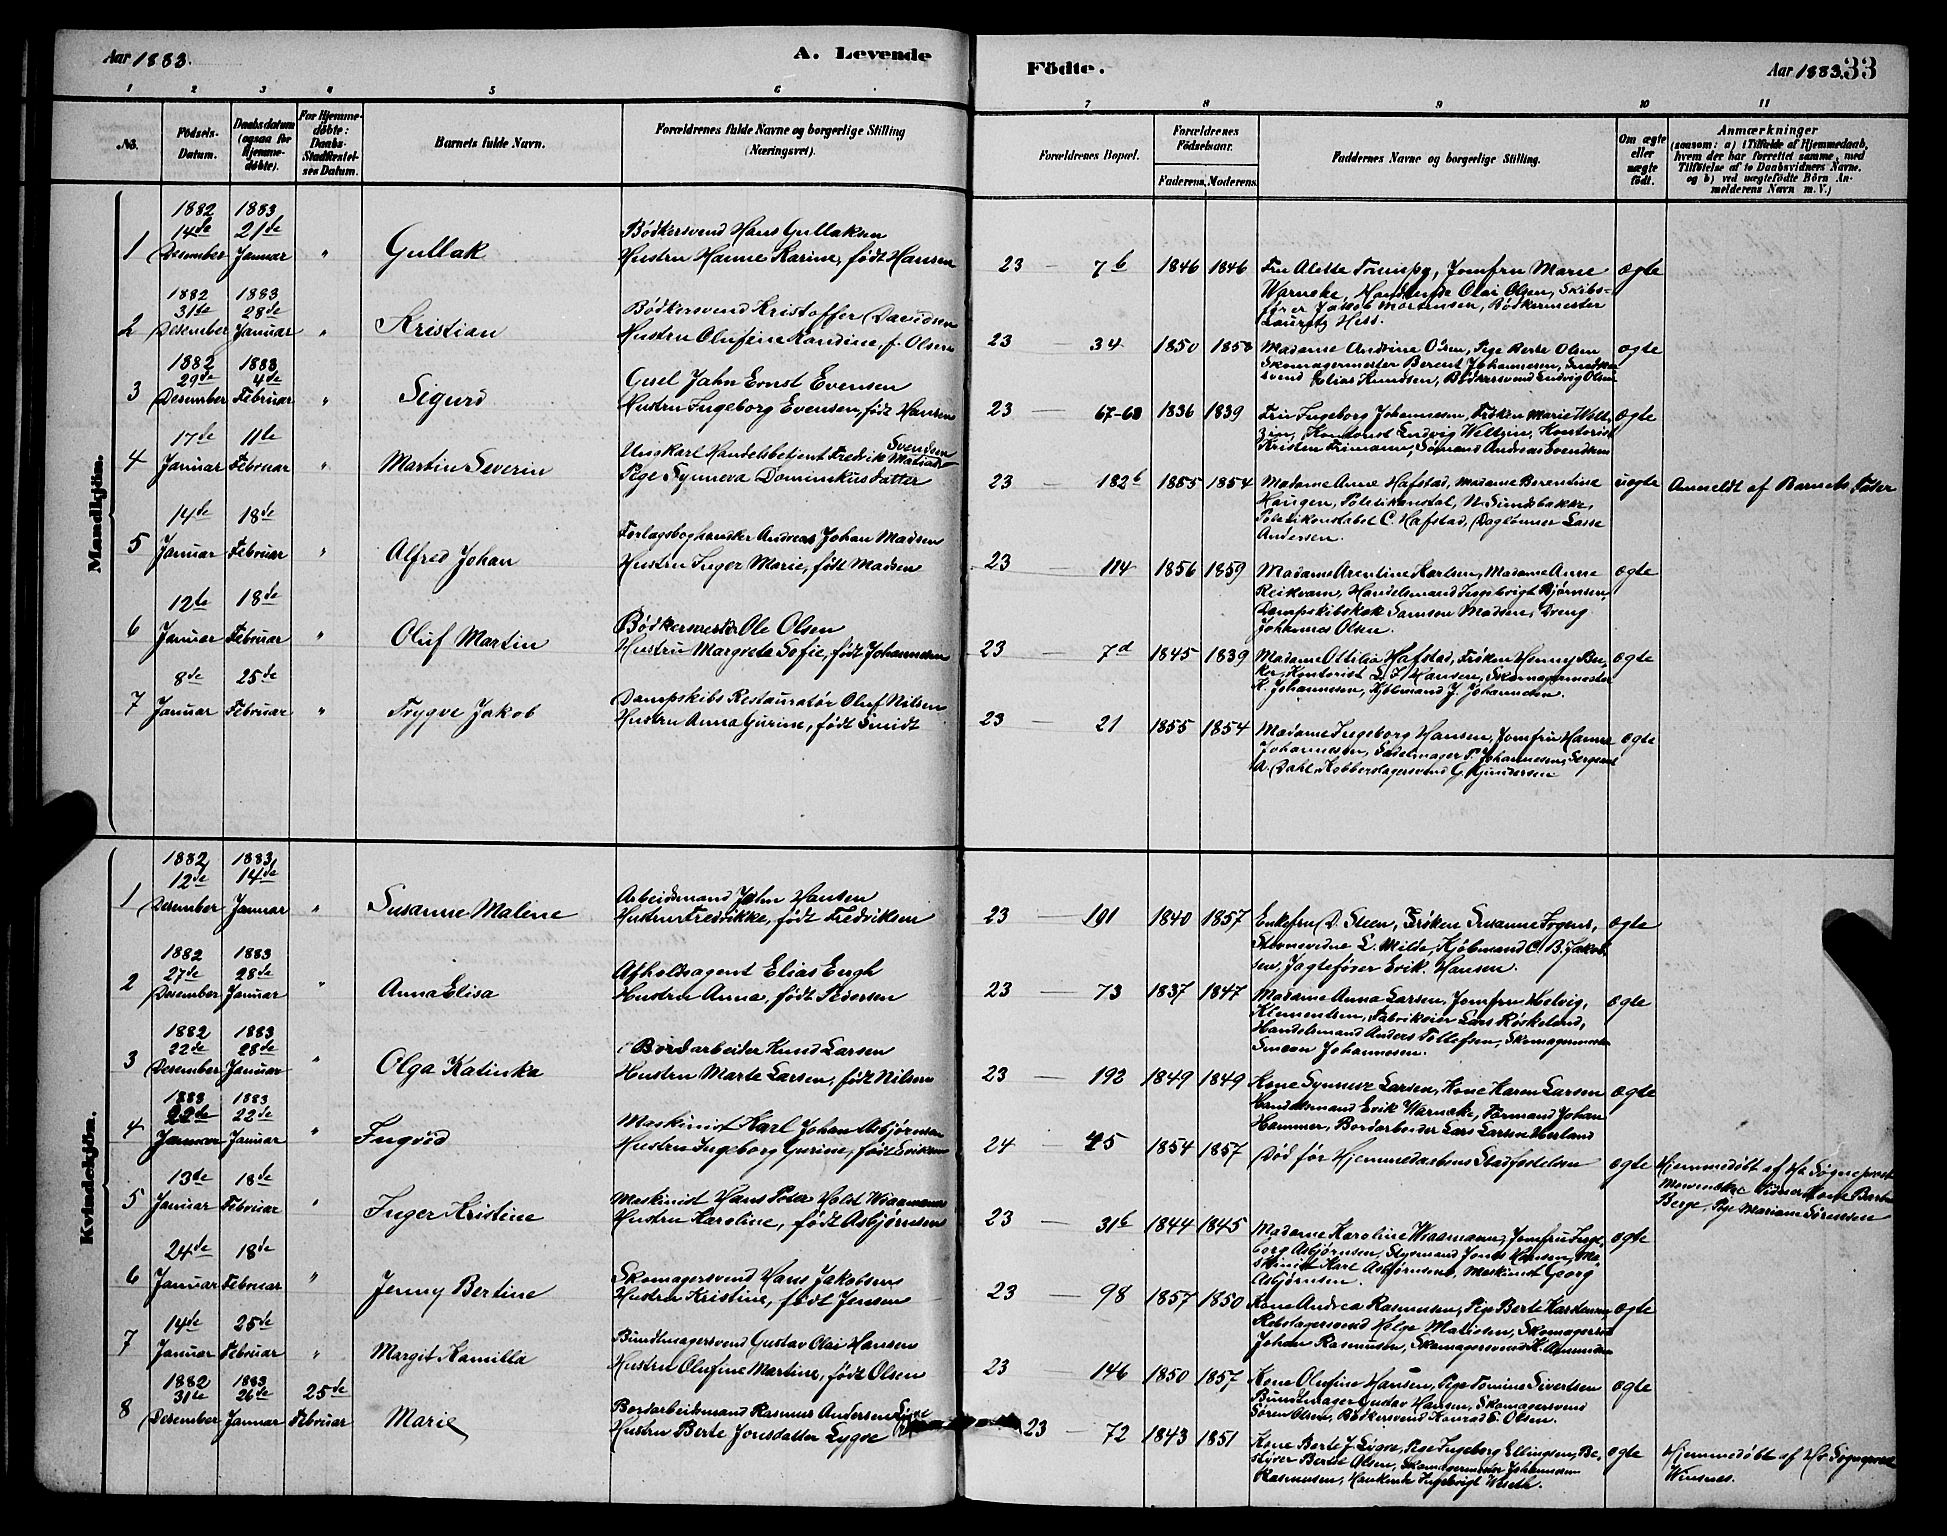 Aar 1883.
A. Levende
Födte.
Aar 1883.
33
1 2 3 4 5 6 7 8 9 10 11
No.
Födsels-
Datum.
Daabsdatum
(ogsaa for
Hjemme-
döbte).
For Hjemme-
döbte:
Daabs-
Stadfæstel-
ses Datum.
Barnets fulde Navn.
Forældrenes fulde Navne og borgerlige Stilling
(Næringsvei).
Forældrenes Bopæl.
Forældrenes
Födselsaar.
Faderens. Moderens.
Faddernes Navne og borgerlige Stilling.
Om ægte
eller
uægte
født.
Anmærkninger
(saasom: a) i Tilfælde af Hjemmedaab,
hvem der har forrettet samme, med
Tilföielse af to Daabsvidners Navne.
og b) ved uægtefödte Börn An-
melderens Navn m. V.)
Mandkjön.
1882 1883
14de 21de
1 Desember Januar " Gullak
Bödkersvend Hans Gullaksen
Hustru Hanne Karine, født Hansen
23 — 7b 1846 1846
Fru Alette, Jomfru Marie
Warncke, Handlende Olai Olsen, Skibs-
fører Jakob Mortensen, Bödkermester
Lauritz Hess.
ægte
1882 1883
31te 28de
2 Desember Januar " Kristian
Bödkersvend Kristoffer Davidsen
Hustru Olufine Randine, f. Olsen
23 — 34 1850 1850
Madame Andrine Olsen, Pige Berte Olsen
Skomagermester Berent Johannesen, Snedker
svend Elias Knudsen, Bødkersvend Ludvig Olsen
ægte
1882 1883
29de 4de
3 Desember Februar " Sigurd
Gesel Jahn Ernst Evensen
Hustru Ingeborg Evensen, født Hansen
23 — 67-68 1836 1839
Fru Ingeborg Johannesen, Frøken Marie Welt-
zin, Kontorist Ludvig Weltzin, Kontorist
Kristen Frimann, Sømand Andreas Svendsen
ægte
17de 11te
4 Januar Februar " Martin Severin
Ungkarl Handelsbetjent Fredrik Matias Svendsen
Pige Synneva Dominikusdatter
23 — 182b 1855 1854
Madame Anne Hafstad, Madame Berentine
Haugen, Politikonstab. N. Sundsbakke,
Politikonstabel C. Hafstad, Daglønner Lasse
Andersen.
uægte
Anmeldt af Barnets Fader
14de 18de
5 Januar Februar " Alfred Johan
Forlagsboghandler Andreas Johan Madsen
Hustru Inger Marie, født Madsen
23 — 114 1856 1859
Madame Arentine Karlsen, Madame Anne
Reikvam, Handelsmand Ingebrigt Bjørnsen,
Dampskibskok Samson Madsen, Dreng
Johannes Olsen.
ægte
12te 18de
6 Januar Februar " Oluf Martin
Bödkermester Ole Olsen
Hustru Margrete Sofie, født Johannesen
23 — 7d 1845 1839
Madame Ottilia Hafstad, Frøken Henny Be-
ker, Kontorist L. J. Hansen, Skomagermester
K. Johannesen, Kjøbmand J. Johannesen.
ægte
8de 25de
7 Januar Februar " Trygve Jakob
Dampskibs Restauratør Oluf Nilsen
Hustru Anna Gurine, født Smidt
23 — 21 1855 1854
Madame Ingeborg Hansen, Jomfru Hanna
Johannesen, Sadelmager P. Johannesen, Sergeant
A. Dahl, Kobberslagersvend G. Gundersen
ægte
Kvindekjön.
1882 1883
12te 14de
1 Desember Januar " Susanne Malene
Arbeidsmand John Hansen
Hustru Fredrikke, født Fredriksen
23 — 101 1840 1857
Enkefru D. Steen, Frøken Susanne Fogens,
Stevnevidne L. Milde, Kjøbmand C. B. Jakob-
sen, Jagtefører Erik Hansen.
ægte
1882 1883
27de 28de
2 Desember Januar " Anna Elisa
Afholdsagent Elias Engh
Hustru Anna, født Pedersen
23 — 73 1837 1847
Madame Anna Larsen, Jomfru Helvig
Klementsen, Fabrikeier Lars Røskeland,
Handelsmand Anders Tollefsen, Skomagermester
Simeon Johannesen.
ægte
1882 1883
22de 28de
3 Desember Januar " Olga Katinka
Bordarbeider Knud Larsen
Hustru Marte Larsen, født Nilsen
23 — 192 1849 1849
Kone Synneve Larsen, Kone Karen Larsen
Handelsmand Erik Warncke, Formand Johan
Hammer, Bordarbeider Lars Larsen Herland
ægte
1883 1883
22de 22de
4 Januar Januar " Ingrid
Maskinist Karl Johan Asbjørnsen
Hustru Ingeborg Gurine, født Eriksen
24 — 45 1854 1857
Død før Hjemmedaabens Stadfæstelse
ægte
Hjemmedøbt af Hr Sogneprest
Vidner Kone Barbra
Berge, Pige Mariane Sørensen
13de 18de
5 Januar Februar " Inger Kristine
Maskinist Hans Peter Holst Wiasmann
Hustru Karoline, født Asbjørnsen
23 — 31b 1844 1845
Madame Karoline Wiasmann, Jomfru Inge-
borg Asbjørnsen, Styrmand Jonas Hansen, Ma-
skinist Karl Asbjørnsen, Maskinist Georg
Asbjørnsen.
ægte
24de 18de
6 Januar Februar " Jenny Bertine
Skomagersvend Hans Jakobsen
Hustru Kristine, født Jensen
23 — 98 1857 1850
Kone Andrea Rasmussen, Pige Berte Karstensen,
Rebslagersvend Helge Madsen, Skomagersvend
Johan Rasmussen, Skomagersvend K. Amundsen
ægte
14de 25de
7 Januar Februar " Margit Kamilla
Bundtmagersvend Gustav Olai Hansen
Hustru Olufine Martine, født Olsen
23 — 146 1850 1857
Kone Olufine Hansen, Pige Tomine Sivertsen
Bundtmager Gustav Hansen, Skomagersvend
Søren Olsen, Bødkersvend Konrad E. Olsen.
ægte
1882 1883
31te 26de 25de
8 Desember Januar Februar Marie
Bordarbeidsmand Rasmus Andersen Lygre
Hustru Berte Jonsdatter Lygre
23 — 72 1843 1851
Kone Berte J. Lygre, Pige Ingeborg Ellingsen, Be-
styrer Bertel Olsen, Skomagermester Johannesen
Rasmussen, Ingebrigt Weseth.
ægte
Hjemmedøbt af Hr Sogneprest
Winsnes.